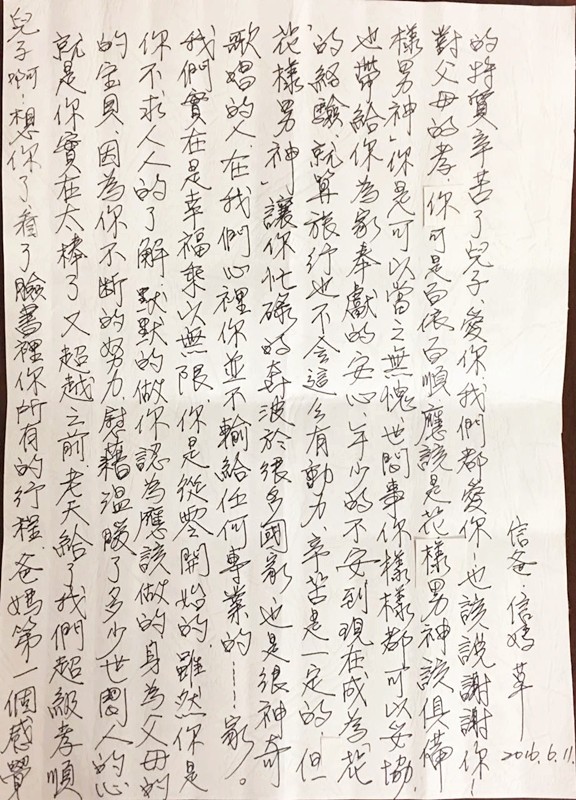 兒子啊！想你了看了臉書裡你所有的行程，爸媽第一個感覺
就是你實在太棒了又超越之前，老天給了我們超級孝順
的宝貝，因為你不斷的努力，慰藉溫暖了多少世間人的心
你不求人人的了解，默默的做你認為應該做的身為父母的
我們實在是幸福乘以無限，你是從零開始的，雖然你是
歌唱的人，在我們心裡你並不輸給任何專業的……家。
花樣男神」讓你忙碌的奔波於很多國家，也是很神奇
的經驗，就算旅行也不会這么有動力，辛苦是一定的，但
也帶給你為家奉獻的安心，年少的不安到現在成為「花
樣男神」你是可以當之無愧，世間事你樣樣都可以妥協，
對父母的孝，你可是百依百順應該是花樣男神該俱備
的特質辛苦了兒子、愛你我們都愛你！也該說謝謝你！
信爸、信媽 草
2016.6.11.